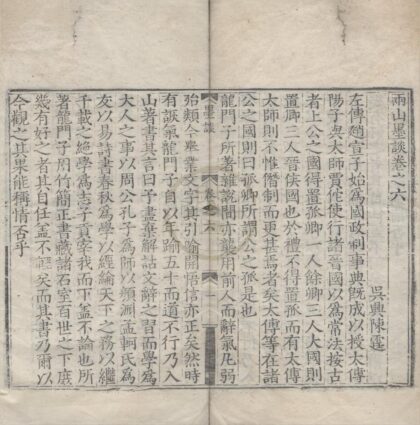 兩山墨談卷之六
吳興陳霆
左傳趙宣子始為國政制事典既成以授太傅
陽子與大師賈佗使行諸晉國以為常法按古
者上公之國得置孤卿一人餘卿三人大國則
置卿三人晉侯國也於禮不得置孤而有太傅
太師則不惟僭制而更甚焉者矣太傅等在諸
公之國則曰孤卿所謂公之孤是也
龍門子所著雜說間亦龍用前人而辭氣凡弱
墨談 卷之六 一
殆類今舉業文字其引喻開悟信亦正矣然時
有誇氣龍門子自以年踰五十而道不行乃入
山著書其言曰予盡棄解詁文辭之習而學為
大人之事以周公孔子為師以顏淵孟軻氏為
友以易詩書春秋為學以經綸天下之務以繼
千載之絕學為志子貢宰我而下蓋不論也所
著龍門子用竹簡正書藏諸石室百世之下庶
幾有好之者其自任蓋不輕矣而其書乃爾以
今觀之其果能稱情否乎